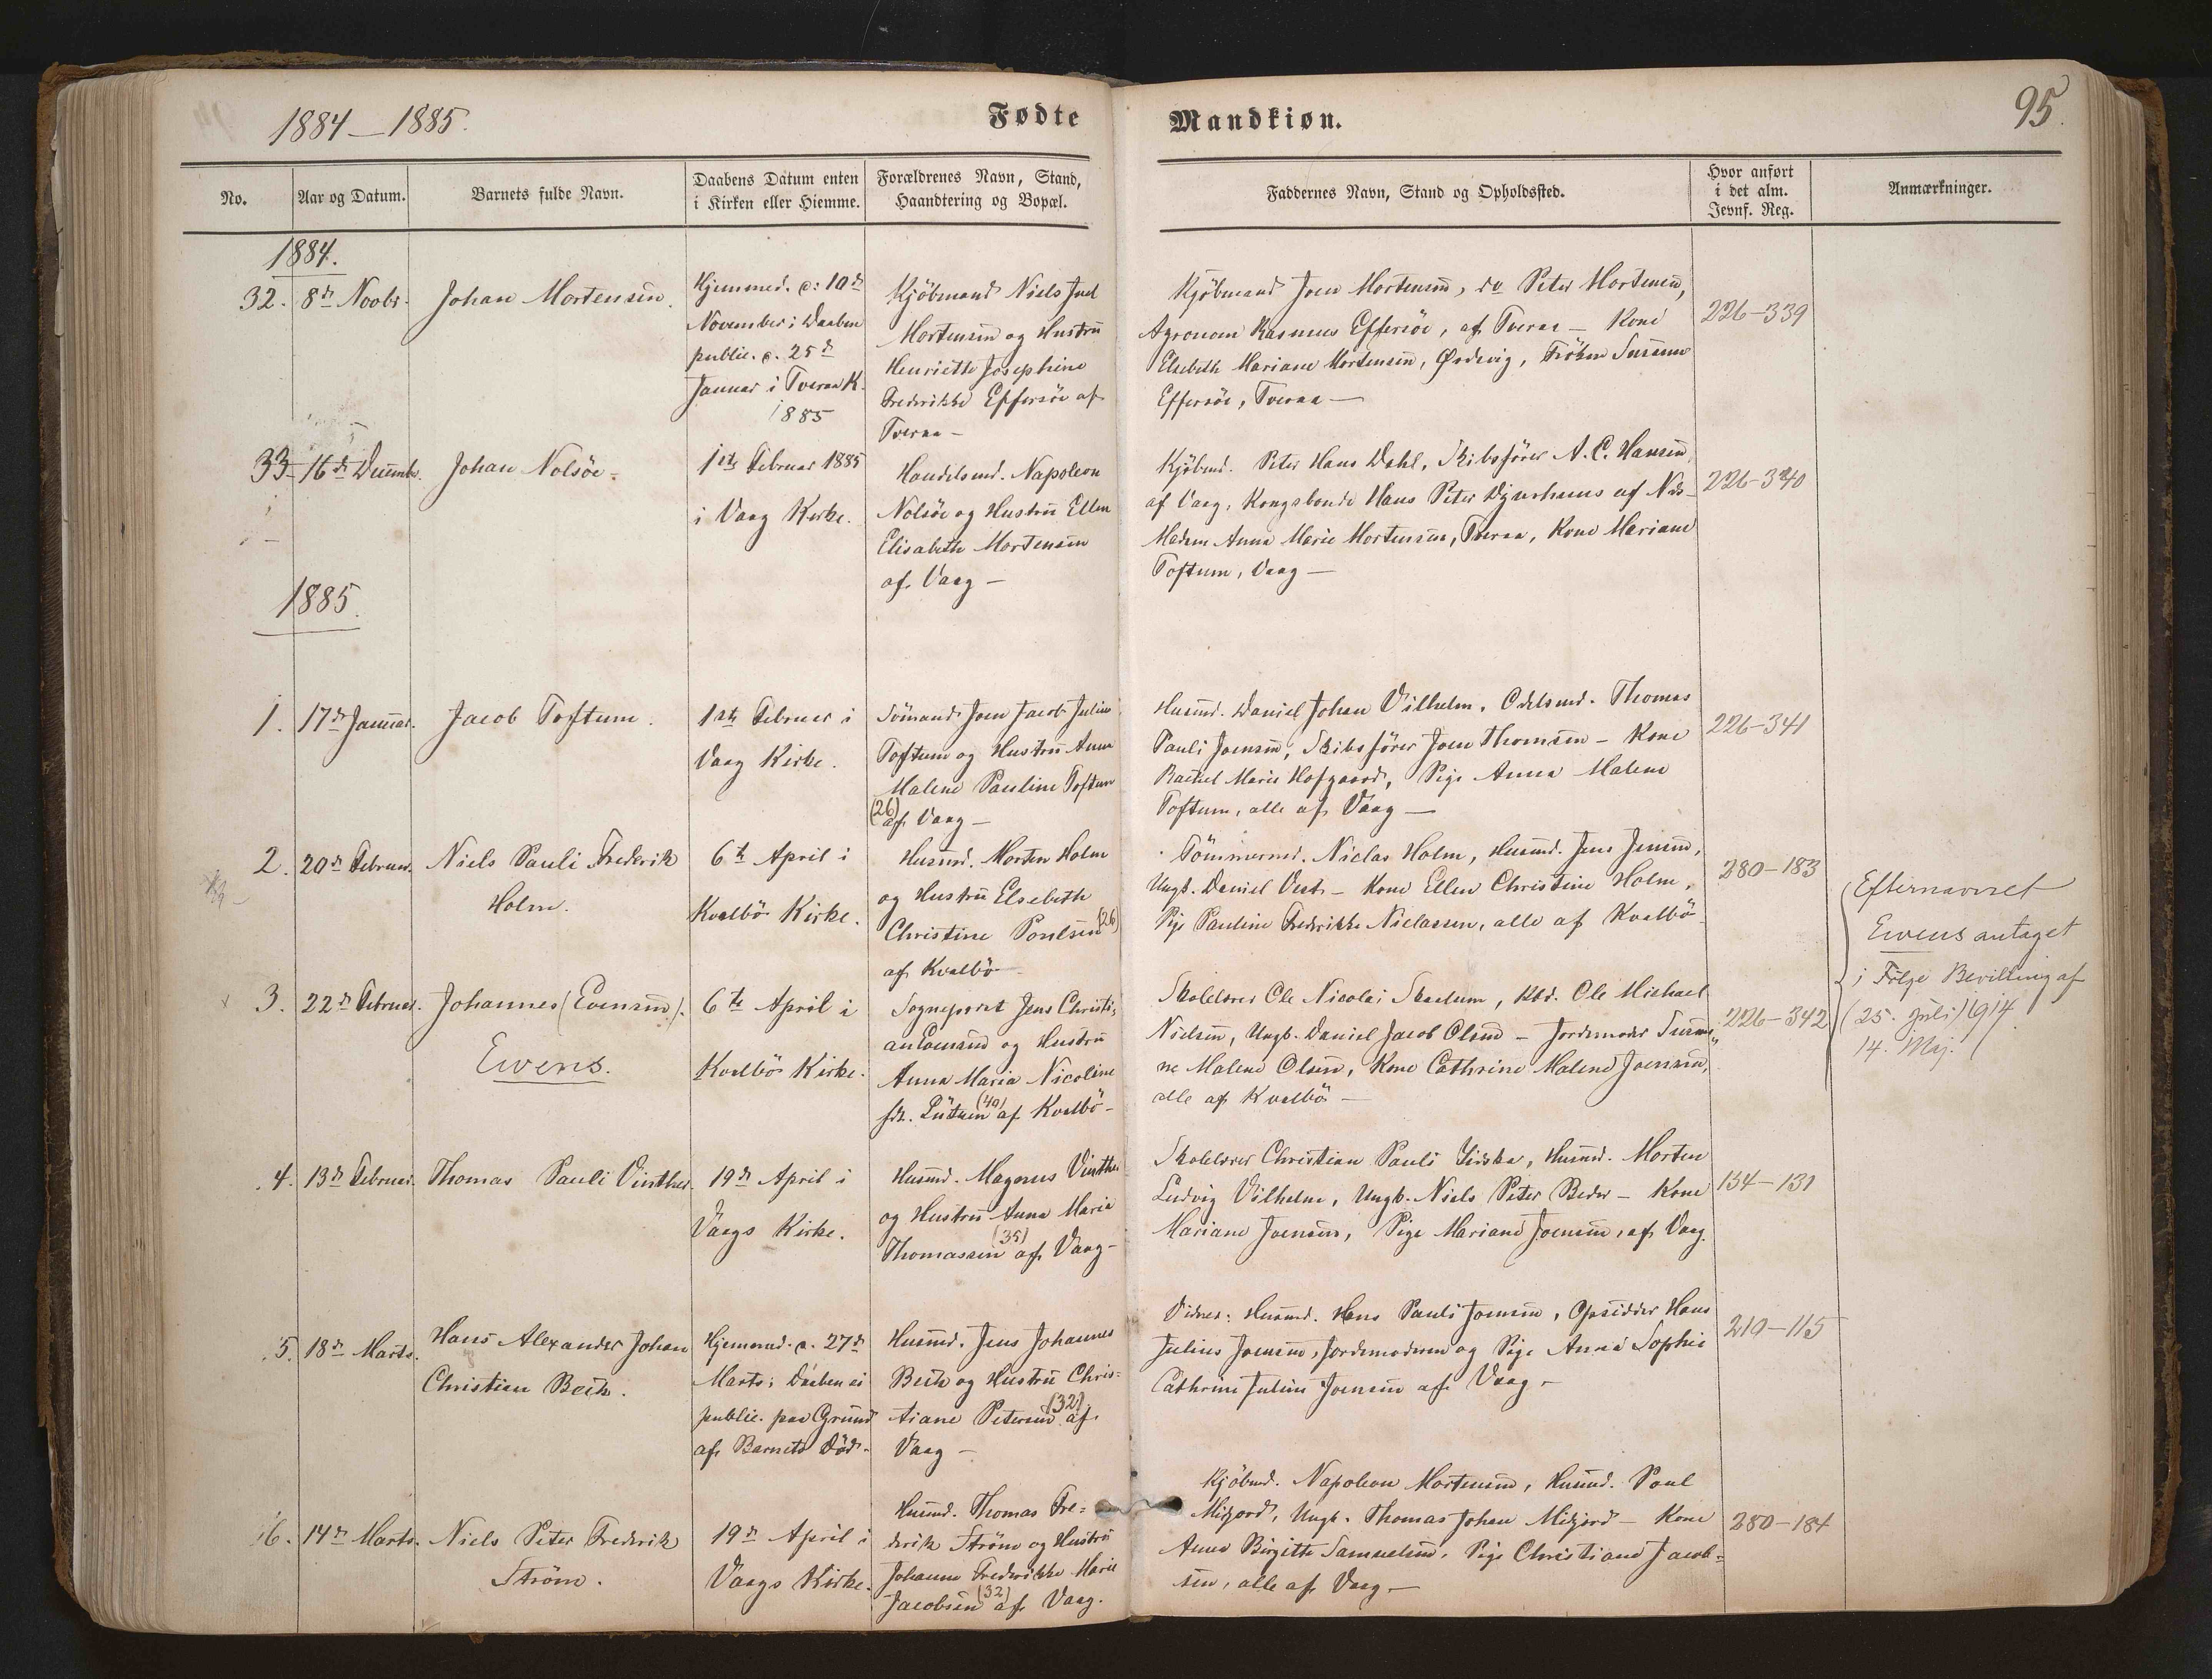 1884–1885.
Fødte
Mandkiøn.
95.
No.
Aar og Datum.
Barnets fulde Navn.
Daabens Datum enten
i Kirken eller Hiemme.
Forældrenes Navn, Stand,
Haandtering og Bopæl.
Faddernes Navn, Stand og Opholdssted.
Hvor anført
i det alm.
Jevnf. Reg.
Anmærkninger.
1884.
32.
8de Novbr.
Johan Mortensen.
Hjemmed. d: 10de
November; Daaben
public. d. 25de
Januar i Tveraa K.
1885
Kjöbmand Niels Juel
Mortensen og Hustru
Henriette Josephine
Frederikke Effersöe af
Tveraa –
Kjöbmand Joen Mortensen, do Peter Mortensen,
Agronom Rasmus Effersöe, af Tveraa – Kone
Elsebeth Mariane Mortensen, Ørdevig, Fröken Susanne
Effersöe, Tveraa –
226–339
33
16de Decembr.
Johan Nolsöe.
1ste Februar 1885
i Vaag Kirke.
Handelsmd. Napoleon
Nolsöe og Hustru Ellen
Elisabeth Mortensen
af Vaag –
Kjöbmd. Peter Hans Dahl, Skibsförer A. C. Hansen,
af Vaag, Kongsbonde Hans Peter Djurhuus af Næs –
Madam Anna Marie Mortensen, Tveraa, Kone Mariane
Toftum, Vaag –
226–340
1885.
1.
17de Januar.
Jacob Toftum.
1ste Februar i
Vaag Kirke.
Sömand Joen Jacob Julius
Toftum og Hustru Anna
Malene Pauline Toftum
(26) af Vaag –
Husmd. Daniel Johan Vilhelm, Odelsmd. Thomas
Pauli Joensen, Skibsförer Joen Thomsen – Kone
Rachel Marie Hofgaard, Pige Anna Malene
Toftum, alle af Vaag –
226–341
2.
20de Februar.
Niels Pauli Frederik
Holm.
6te April i
Kvalbö Kirke.
Husmd. Morten Holm
og Hustru Elsebeth
Christine Poulsen (26)
af Kvalbö –
Tömmermd. Niclas Holm, Husmd. Jens Jensen,
Ungk. Daniel Vest – Kone Ellen Christine Holm,
Pige Pauline Frederikke Niclassen, alle af Kvalbö
280–183
3.
22de Februar.
Johannes (Evensen).
Ewens.
6te April i
Kvalbö Kirke.
Sognepræst Jens Christi-
an Evensen og Hustru
Anna Maria Nicoline
f. Lützen (40) af Kvalbö –
Skolelærer Ole Nicolai Skaalum, Kbd. Ole Michael
Nielsen, Ungk. Daniel Jacob Olsen – Jordemoder Susan-
ne Malene Olsen, Kone Cathrine Malene Joensen,
alle af Kvalbö –
226–342
Efternavnet
Ewens antaget
i Følge Bevilling af
(25. Juli) 1914.
14. Maj.
4.
13de Februar.
Thomas Pauli Vinther.
19de April i
Vaags Kirke.
Husmd. Magnus Vinther
og Hustru Anna Maria
Thomassen (35) af Vaag –
Skolelærer Christian Pauli, Husmd. Morten
Ludvig Vilhelm, Ungk. Niels Peter Beder – Kone
Mariane Joensen, Pige Mariane Joensen, af Vaag.
134–131
5.
18de Marts.
Hans Alexander Johan
Christian Bech.
Hjemmed. d. 27de
Marts; Daaben ei
public. paa Grund
af Barnets Död.
Husmd. Jens Johannes
Bech og Hustru Chris-
tiane Petersen (32) af
Vaag –
Vidner: Husmd. Hans Pauli Joensen, Opsidder Hans
Julius Joensen, Jordemoderen og Pige Anna Sophie
Cathrine Juline Joensen af Vaag –
210–115
6.
14de Marts.
Niels Peter Frederik
Ström.
19de April i
Vaags Kirke.
Husmd. Thomas Fre-
derik Ström og Hustru
Johanne Frederikke Marie
Jacobsen (32) af Vaag.
Kjöbmd. Napoleon Mortensen, Husmd. Poul
Midjord, Ungk. Thomas Johan Midjord – Kone
Anna Birgitte Samuelsen, Pige Christiane Jacob-
sen, alle af Vaag –
280–184